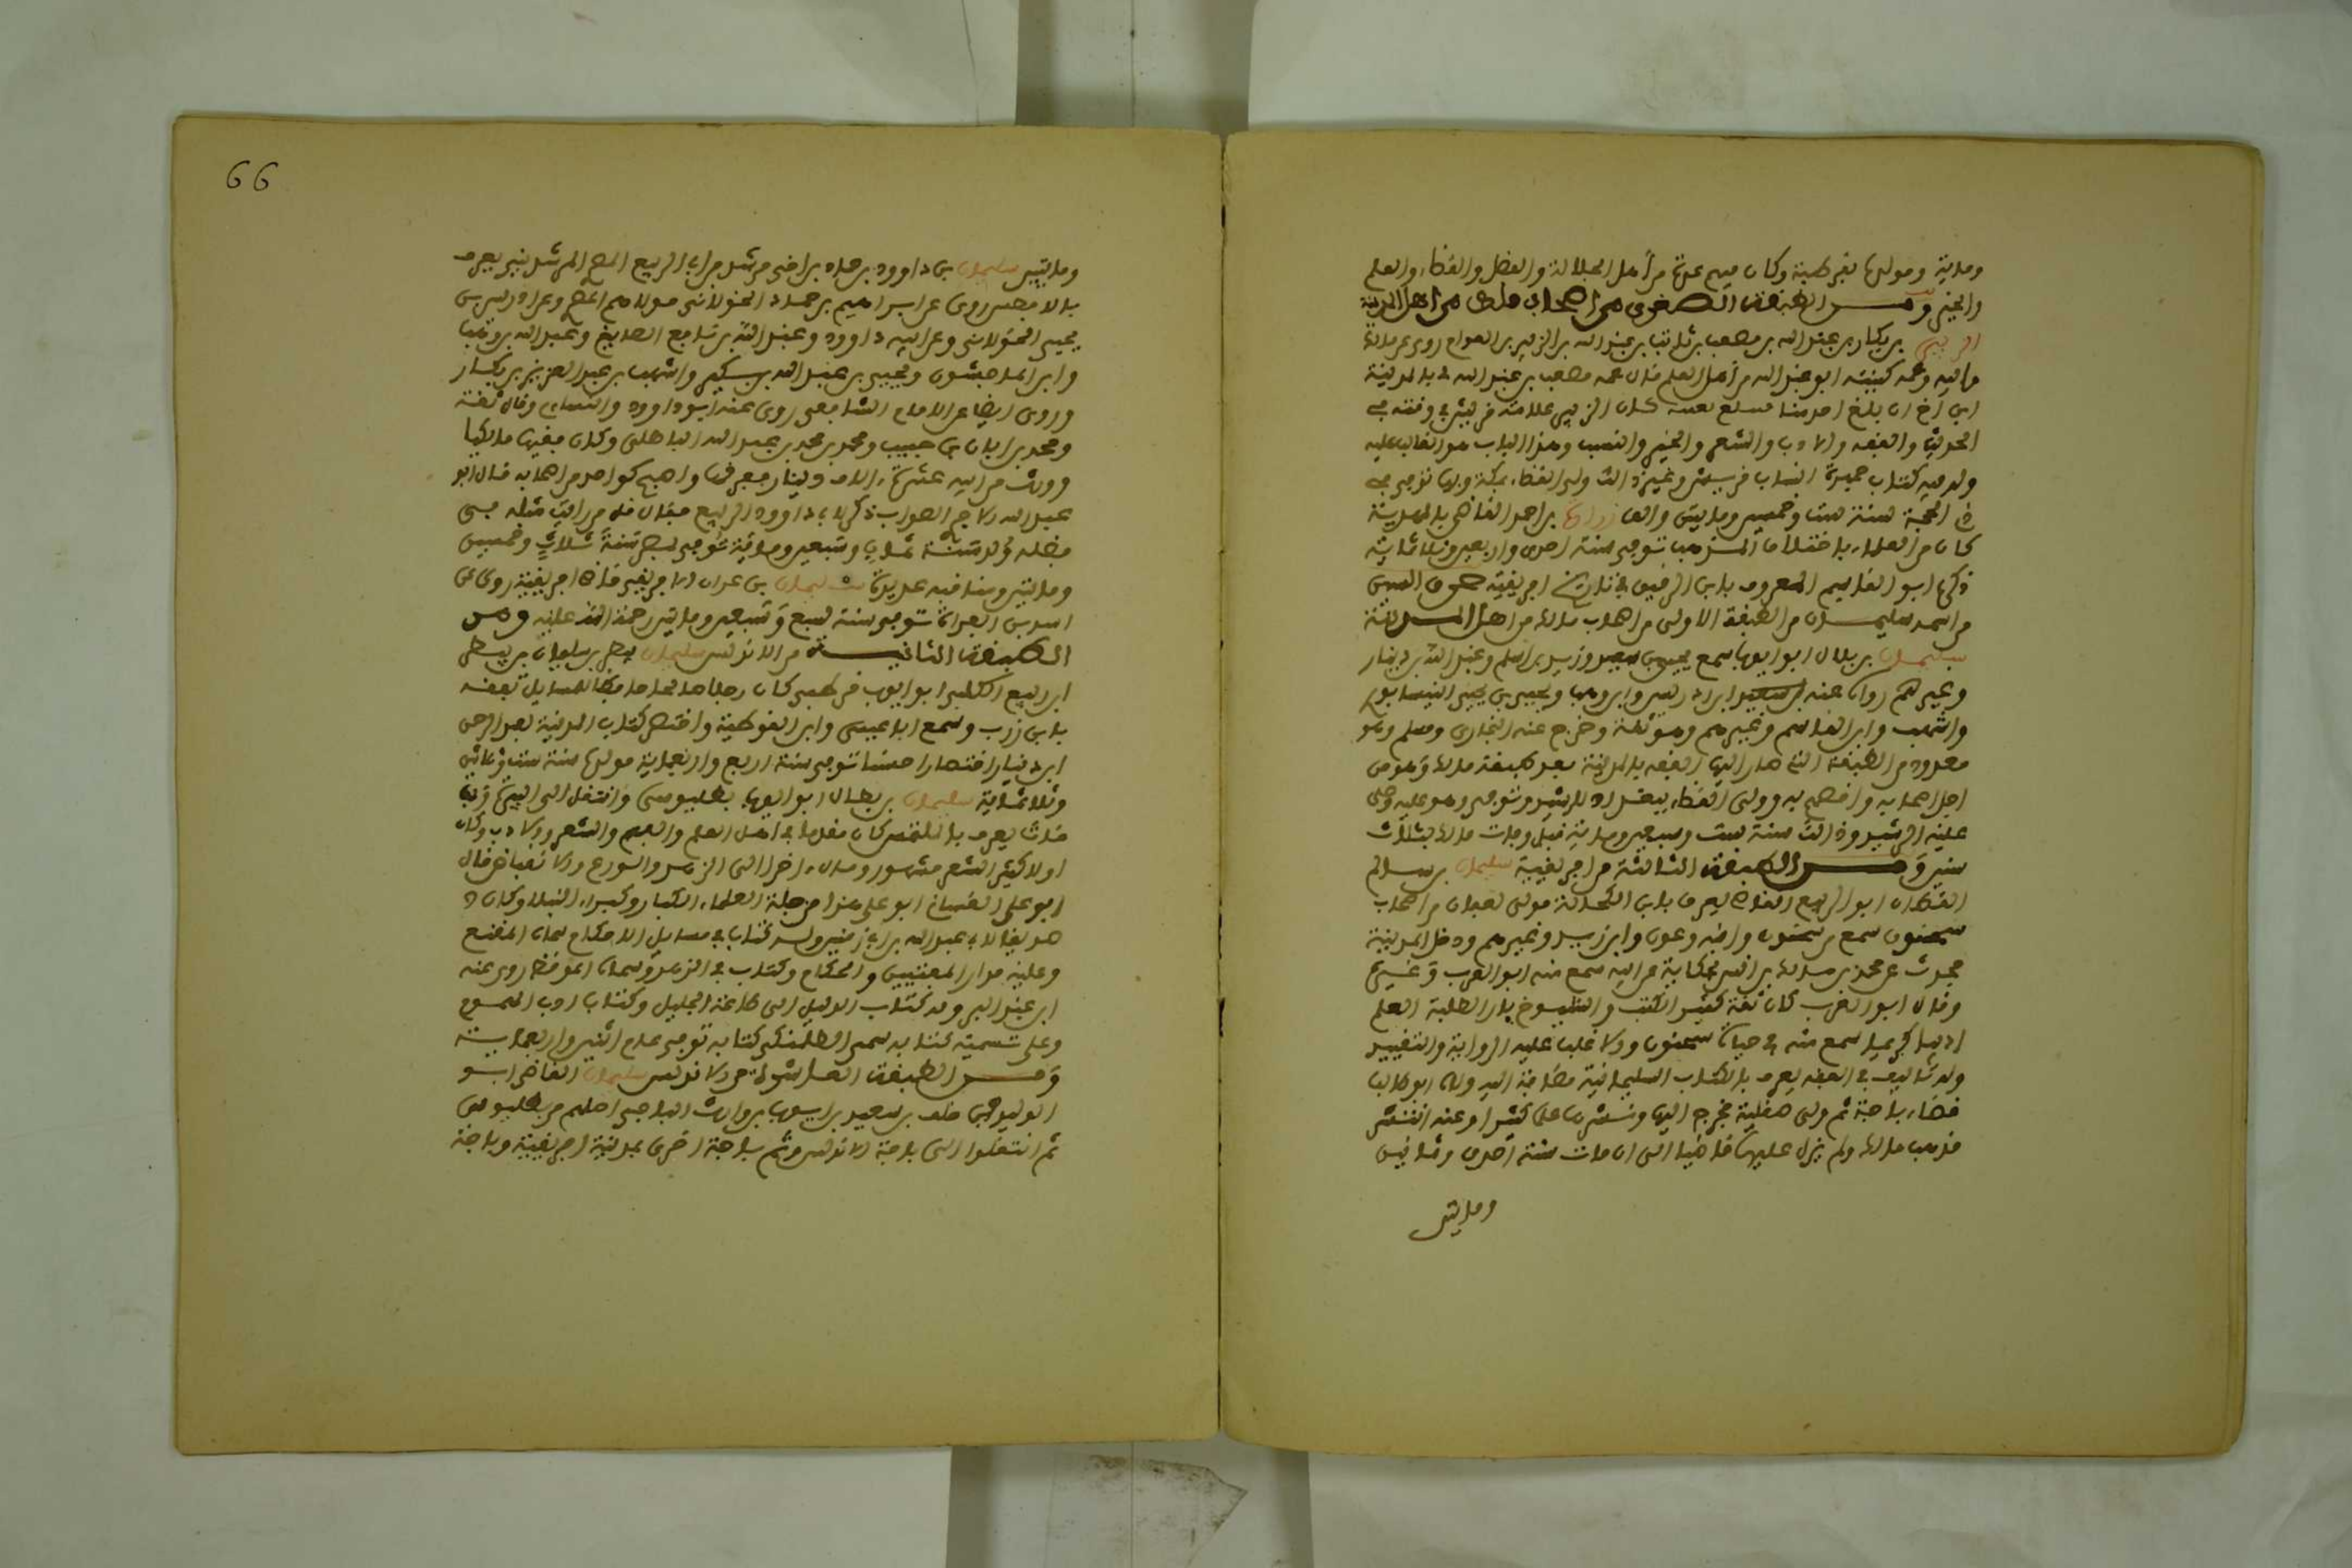 ومائة ومولده بقرطبة وكان ممن عرف من أهل الجلالة والفضل والقضاء والعلم
والخير ومن الطبقة الصغرى من أصحاب مالك من أهل المدينة
الزبير بن بكار بن عبد الله بن مصعب بن ثابت بن عبد الله بن الزبير بن العوام روى عن مالك
وأبيه وعمه كنيته أبو عبد الله من أهل العلم قال عمه مصعب بن عبد الله في بالمدينة
ابن أخ إن بلغ أحد منا فسيبلغ يعنيه كان الزبير علامة قريش في وقته في
الحديث والفقه والأدب والشعر والخبر والنسب وهذا الباب هو الغالب عليه
وله فيه كتاب جمهرة أنساب قريش وغير ذلك ولي القضاء بمكة وبها توفي في
ذي الحجة سنة ست وخمسين ومايتين والف
بن احمد القاضي بالمهدية
كان من العلماء باختلاف المذهب توفي سنة احدى واربعين وثلاثماية
ذكره ابو القاسم المعروف بابن الرقيق في تاريخ افريقية حرف السين
من اسمه سليمان من الطبقة الاولى من اصحاب مالك من اهل المدينة
سليمان بن بلال ابو ايوب سمع يحيى بن سعيد وزيد بن اسلم وعبد الله بن دينار
وغيرهم روى عنه ابن ادريس وابن وهب ويحيى بن يحيى النيسابوري
واشهب وابن القاسم وغيرهم وهو ثقة وخرج عنه البخاري ومسلم وهو
معدود من الطبقة التي صار اليها الفقه بالمدينة بعد طبقة مالك وهو من
اجل اصحابه واخصهم به وولي القضاء ببغداد للرشيد وتوفي وهو عليه وصلى
عليه الرشيد وذلك سنة ست وسبعين وماية قبل وفات مالك بثلاث
سنين ومن الطبقة الثالثة من افريقية سليمان بن سالم
القطان ابو الربيع القاضي يعرف بابن الكحالة مولى لغسان من اصحاب
سحنون سمع من سحنون وابنه وعون وابن زيد وغيرهم ودخل المدينة
فحدث عن محمد بن مالك بن انس بحكاية عن ابيه سمع منه ابو العرب وغيره
وقال ابو العرب كان ثقة كثير الكتب والشيوخ بارا لطلبة العلم
اديبا كريما سمع منه في حياة سحنون والاغلب عليه الرواية والتقييد
وله تاليف في الفقه يعرف بالكتب السليمانية مضافة اليه ولاه ابن طالب
قضاء باجة ثم ولي صقلية فخرج اليها ونشر بها علما كثيرا وعنه انتشر
مذهب مالك ولم يزل عليها قاضيا الى ان مات سنة احدى وثمانين
ومايتين
66
ومايتين سليمان بن داوود بن حماد بن اخي رشدين ابا الربيع المصري الرشديني يعرف
بالافطس روى عن ابراهيم بن حماد الخولاني مولاهم وعن ادريس بن
يحيى الخولاني وعن ابيه داوود وعبد الله بن نافع الصايغ وعبد الله بن وهب
وابن الماجشون ويحيى بن عبد الله بن بكير واشهب بن عبد العزيز بن بكار
وروى ايضا عن الامام الشافعي روى عنه ابو داوود والنسائي وقال ثقة
ومحمد بن ابان بن حبيب ومحمد بن محمد بن عبد الله الباهلي وكان فقيها مالكيا
وورث من ابيه عشرة الاف دينار ففرقها واصبح كواحد من اصحابه قال ابو
عبد الله الاجري الصواب ذكر لابي داوود ابو الربيع فقال قل من رايت مثله في
فضله ولد سنة ثمان وسبعين وماية توفي بمصر سنة ثلاث وخمسين
ومايتين ومناقبه عديدة سليمان بن عمران الافريقي قاضي افريقية روى عن
اسد بن الفرات توفي سنة سبع وسبعين ومايتين رحمة الله عليه ومن
الطبقة الثانية من الاندلس سليمان بطر بن سليمان بن بيطير
ابن ربيع الكلبي ابو ايوب قرطبي كان رجلا صالحا حافظا للمسايل تفقه
بابن زرب وسمع ابا عيسى وابن القوطية واختصر كتاب المدنية لعبد الرحمن
ابن دينار اختصارا حسنا توفي سنة اربع واربعماية مولده سنة ست وثلاثين
وثلاثماية سليمان بن بطال ابو ايوب بطليوسي وانتقل الى البيرة وبها
مات يعرف بالمتلمس كان مقدما في اهل العلم والفهم والشعر والادب وكان
اولا كثير الشعر مشهورا ومال اخرا الى الزهد والورع والانقباض قال
ابو علي الغساني ابو علي هذا من جلة العلماء الكبار وكبراء النبلاء وكان
صديقا لابي عبد الله بن ابي زمنين وله كتاب في مسايل الاحكام سماه المقنع
وعليه مدار المفتيين والحكام وكتاب في الزهد وسماه الموقظ روى عنه
ابن عبد البر وله كتاب الدليل الى طاعة الجليل وكتاب ادب المهموم
وعلى تسمية كتابه سمى الطلمنكي كتابه توفي عام اثنين واربعماية
ومن الطبقة العاشرة من الاندلس سليمان القاضي ابو
الوليد بن خلف بن سعيد بن ايوب بن وارث الباجي اصلهم من بطليوس
ثم انتقلوا الى باجة الاندلس وثم باجة اخرى بمدينة افريقية وباجة